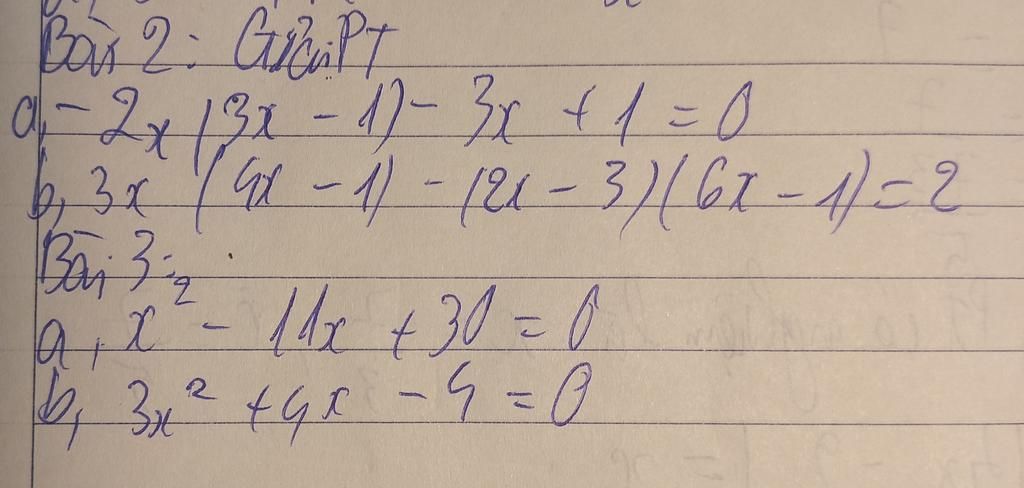 Bài 2: Giải PT
a, - 2x (3x - 1) - 3x + 1 = 0
b, 3x (4x - 1) - (2x - 3)(6x - 1) = 2
Bài 3:
a, x² - 11x + 30 = 0
b, 3x² + 4x - 4 = 0